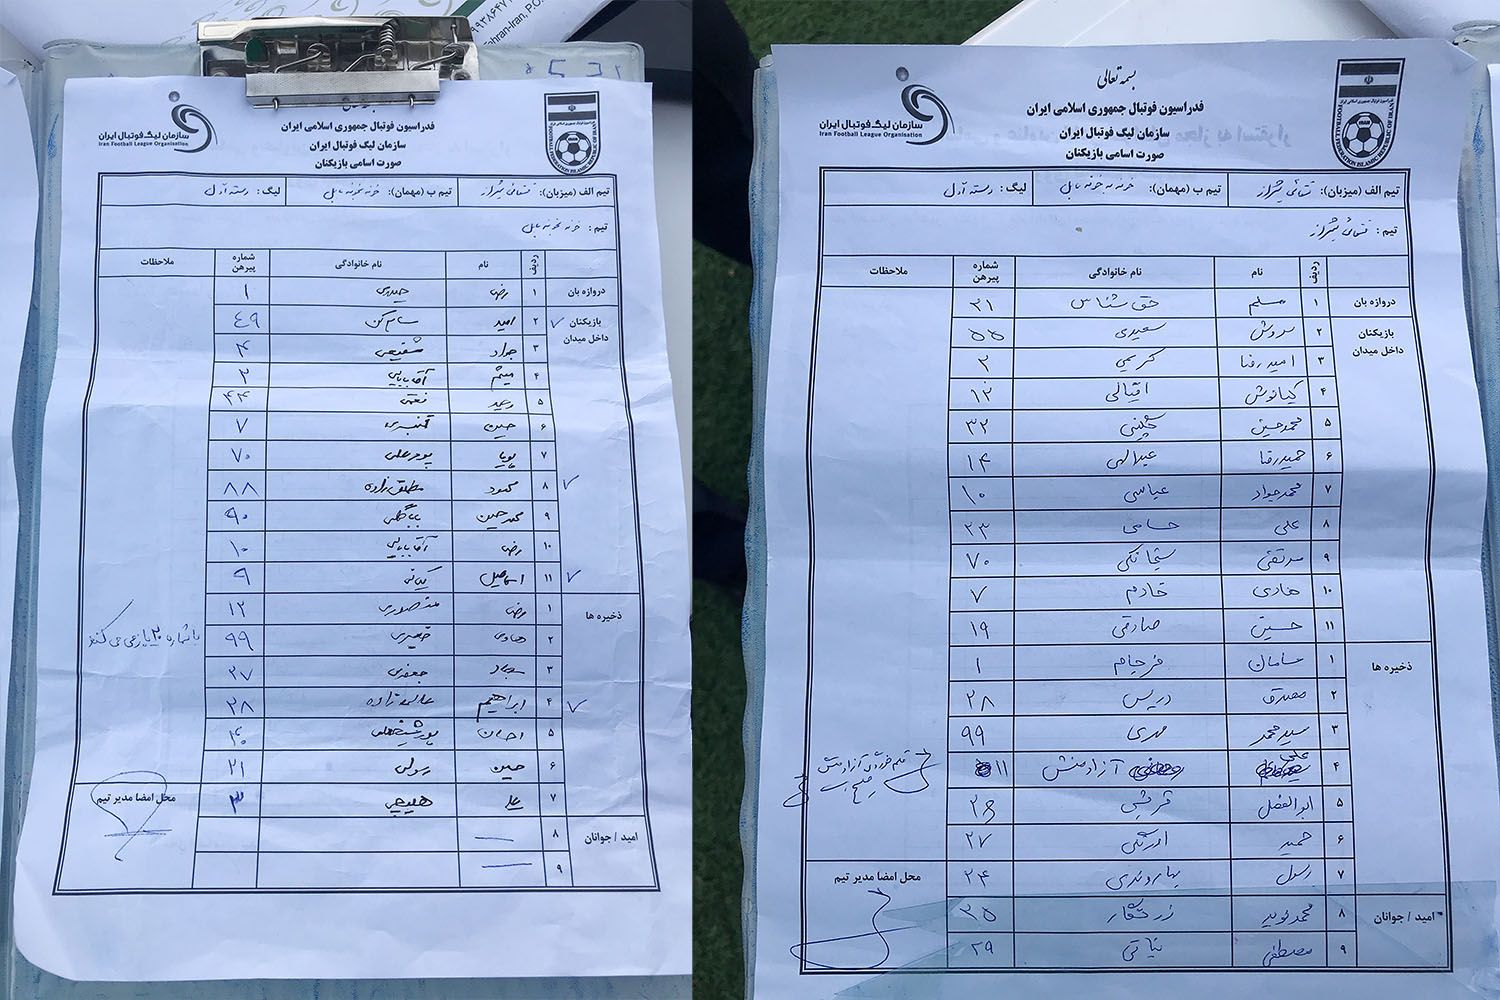 ۹۳۸۶۴۷
Tehran-Iran, P.O.
سازمان لیگ فوتبال ایران
Iran Football League Organisation
فدراسیون فوتبال جمهوری اسلامی ایران
سازمان لیگ فوتبال ایران
صورت اسامی بازیکنان
FOOTBALL FEDERATION ISLAMIC REPUBLIC OF IRAN
تیم الف (میزبان): قشقائی شیراز تیم ب (مهمان): خونه به خونه بابل لیگ: دسته اول
تیم: خونه به خونه بابل
ردیف نام نام خانوادگی شماره پیرهن ملاحظات
دروازه بان ۱ رضا حیدری ۱
بازیکنان داخل میدان ۲ امید سام کن ۴۹
۳ جواد شفیعی ۴
۴ میثم آقابابایی ۲
۵ وحید نعمتی ۴۴
۶ حسین قنبری ۷
۷ پویا پورعلی ۷۰
۸ مطلق زاده ۸۸
۹ محمدحسین باباگلی ۹۰
۱۰ رضا آقابابایی ۱۰
۱۱ اسماعیل ۹
ذخیره ها ۱ رضا منصوری ۱۲
۲ هادی ۹۹ با شماره ۲۰ بازی می کند
۳ سجاد جعفری ۲۷
۴ ابراهیم عالمه زاده ۲۸
۵ احسان ۴۰
۶ حسین رسولی ۲۱
۷ علی ۳
امید / جوانان ۸
۹
محل امضا مدیر تیم
بسمه تعالی
سازمان لیگ فوتبال ایران
Iran Football League Organisation
فدراسیون فوتبال جمهوری اسلامی ایران
سازمان لیگ فوتبال ایران
صورت اسامی بازیکنان
FOOTBALL FEDERATION ISLAMIC REPUBLIC OF IRAN
تیم الف (میزبان): قشقائی شیراز تیم ب (مهمان): خونه به خونه بابل لیگ: دسته اول
تیم: قشقائی شیراز
ردیف نام نام خانوادگی شماره پیرهن ملاحظات
دروازه بان ۱ مسلم حق شناس ۳۱
بازیکنان داخل میدان ۲ سروش سعیدی ۵۵
۳ امیررضا کریمی ۲
۴ کیانوش اقبالی ۱۲
۵ محمدحسین ۳۲
۶ حمیدرضا عبدالهی ۱۴
۷ محمدجواد عباسی ۱۰
۸ علی حسامی ۲۳
۹ مرتضی ۷۰
۱۰ هادی خادم ۷
۱۱ حسین صادقی ۱۹
ذخیره ها ۱ سامان فرجام ۱
۲ مصدق دریس ۲۸
۳ سیدمحمد مهری ۹۹
۴ علی آزادمنش ۱۱
۵ ابوالفضل قریشی
۶ حمید ۲۷
۷ رسول بهاروندی ۲۴
امید / جوانان ۸ محمدنوید زرشکار ۳۵
۹ مصطفی بیاتی ۲۹
محل امضا مدیر تیم